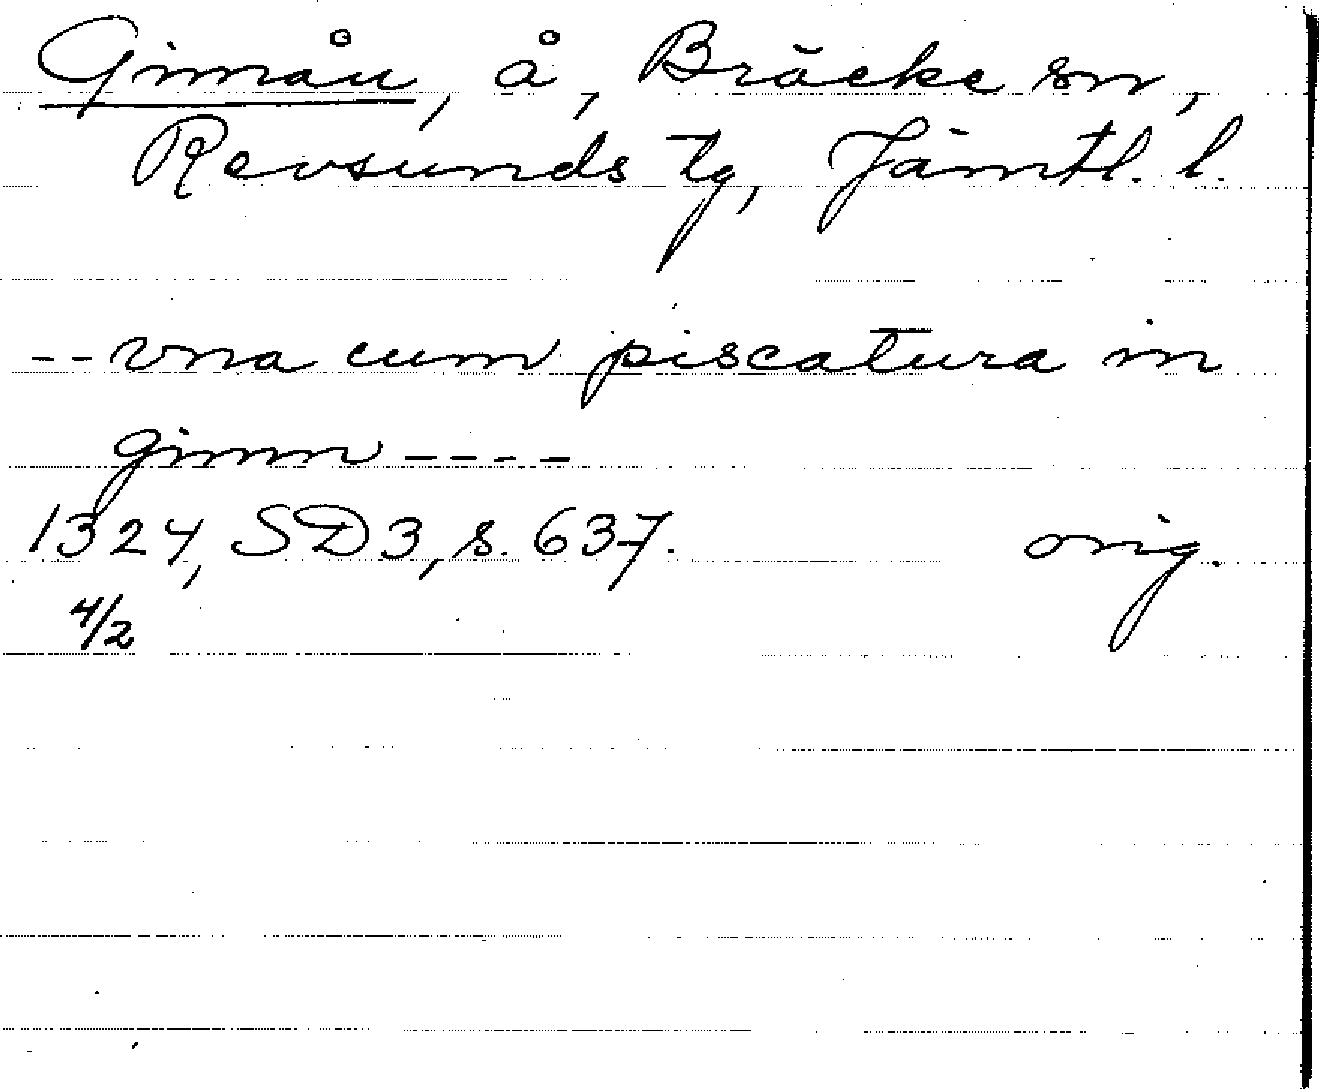 Gimån, å, Bräcke sn,
Revsunds tg, Jämtl. l.
--vna cum piscatura in
gimm ----
1324, SD3, s. 637. orig.
4/2